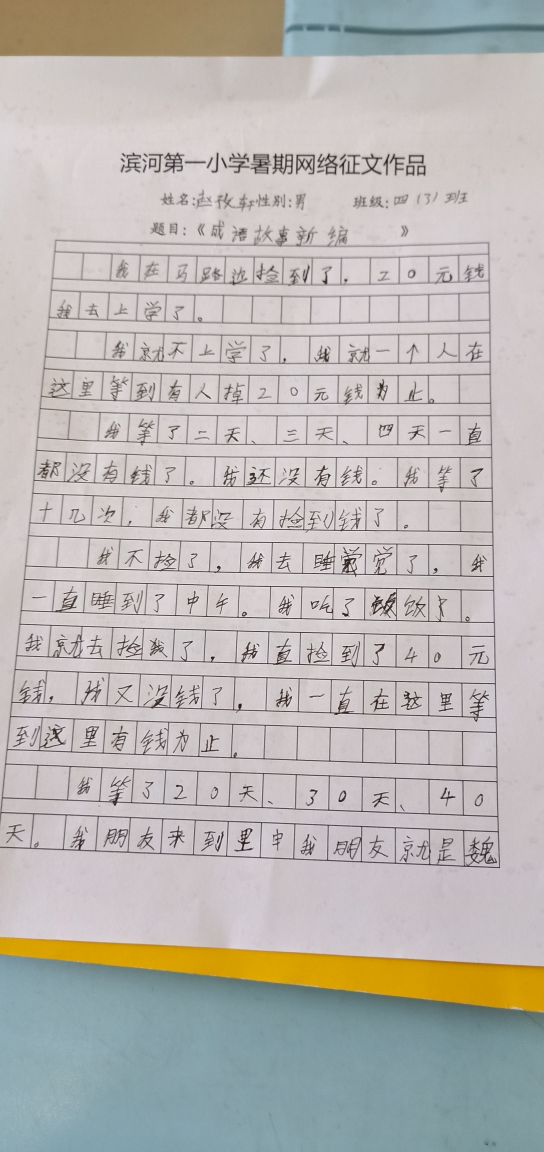 滨河第一小学暑期网络征文作品
姓名:赵孜轩性别:男 班级:四(3)班
题目:《成语故事新编》
我在马路边捡到了,20元钱
我去上学了。
我就不上学了,我就一个人在
这里等到有人掉20元钱为止。
我等了二天、三天、四天一直
都没有钱了。我还没有钱。我等了
十几次,我都没有捡到钱了。
我不捡了,我去睡觉了,我
一直睡到了中午。我吃了饭了。
我就去捡钱了,我直捡到了40元
钱,我又没钱了,我一直在这里等
到这里有钱为止。
我等了20天、30天、40
天。我朋友来到里中我朋友就是魏